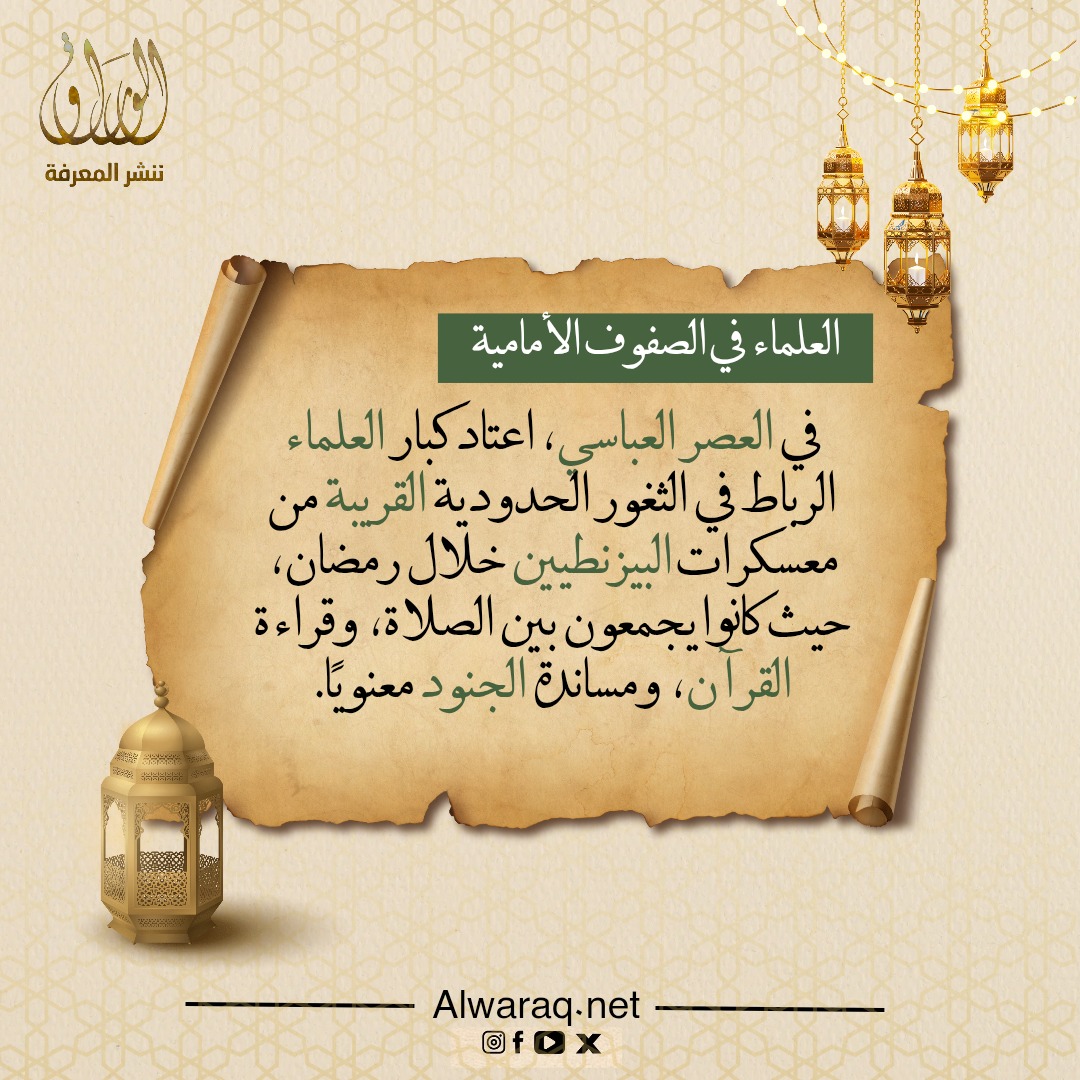 الوراق
ننشر المعرفة
العلماء في الصفوف الأمامية
في العصر العباسي، اعتاد كبار العلماء
الرباط في الثغور الحدودية القريبة من
معسكرات البيزنطيين خلال رمضان،
حيث كانوا يجمعون بين الصلاة، وقراءة
القرآن، ومساندة الجنود معنويًا.
Alwaraq.net